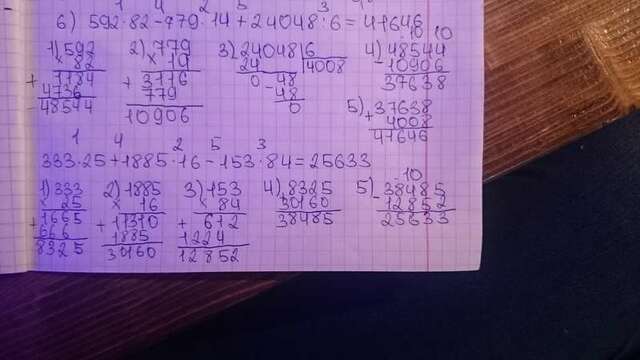 1 4 2 5 3
6) 592·82-779·14+24048:6=41646
1) 592
× 82
+ 1184
4736
48544
2) 779
× 14
+ 3116
779
10906
3) 24048|6
24 4008
0 48
- 48
0
4) 48544
- 10906
37638
5) 37638
+ 4008
41646
1 4 2 5 3
333·25+1885·16-153·84=25633
1) 333
× 25
+ 1665
666
8325
2) 1885
× 16
+ 11310
1885
30160
3) 153
× 84
+ 612
1224
12852
4) 8325
30160
38485
5) 38485
- 12852
25633